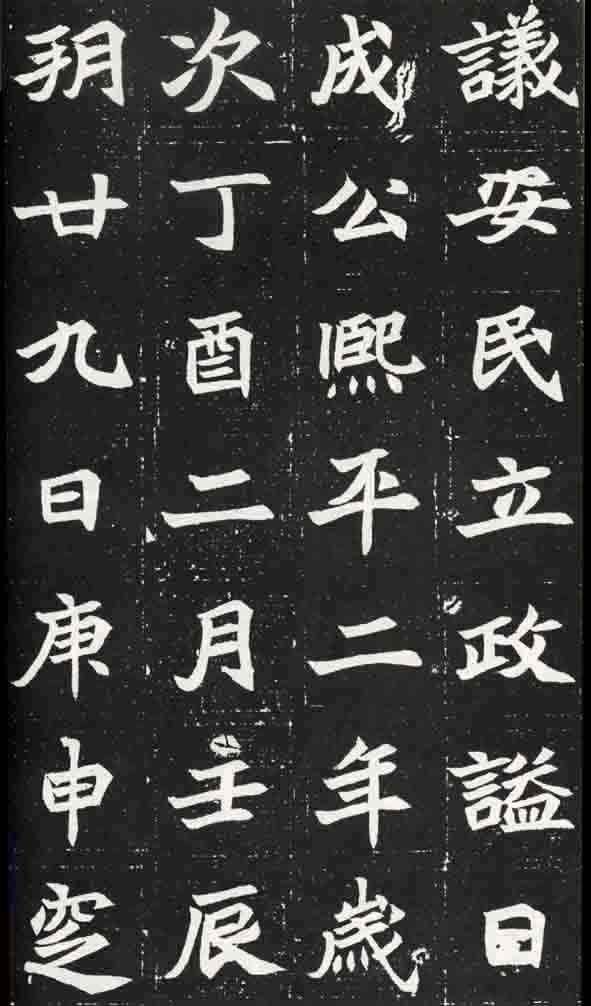 議安民立政謚曰
成公熙平二年歲
次丁酉二月壬辰
朔廿九日庚申窆